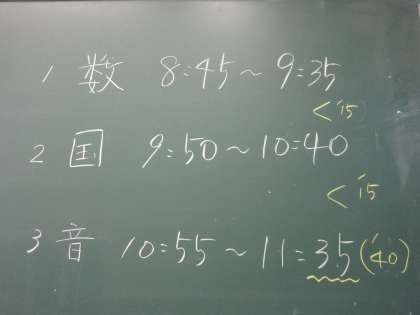 1 数 8:45～9:35
<'15
2 国 9:50～10:40
<'15
3 音 10:55～11:35('40)